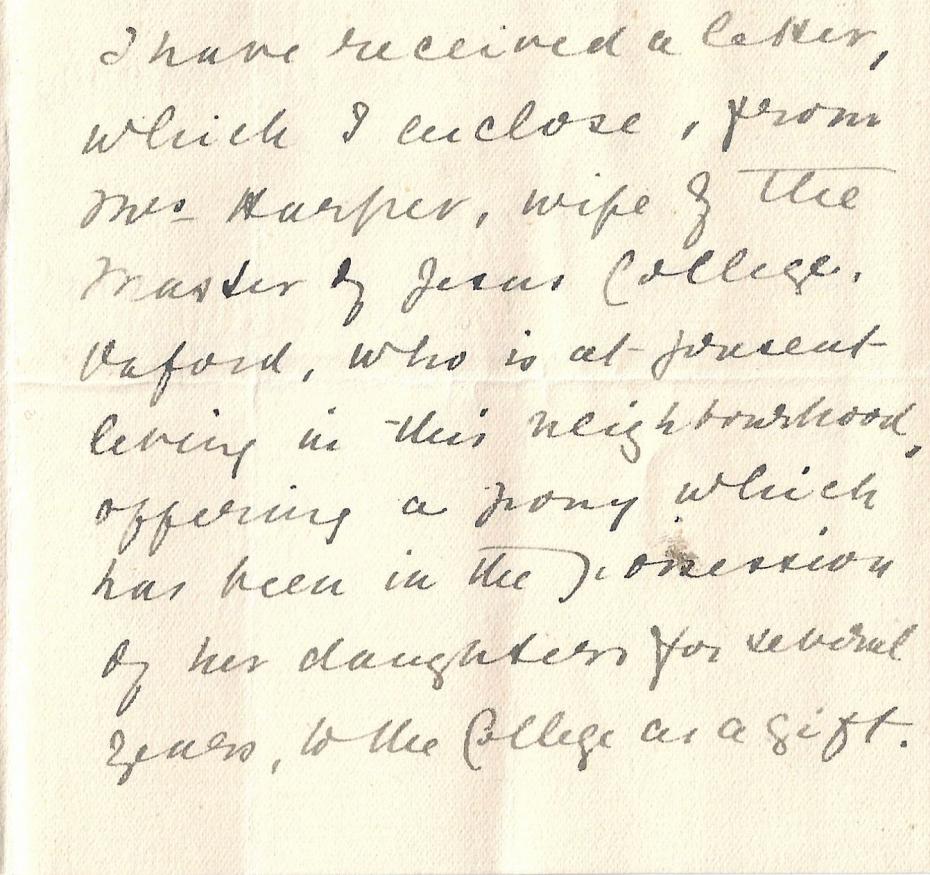 I have received a letter,
which I enclose, from
Mrs Harper, wife of the
Master of Jesus College.
Oxford, who is at present
living in this neighbourhood,
offering a pony which
has been in the possession
of her daughters for several
years, to the College as a gift.